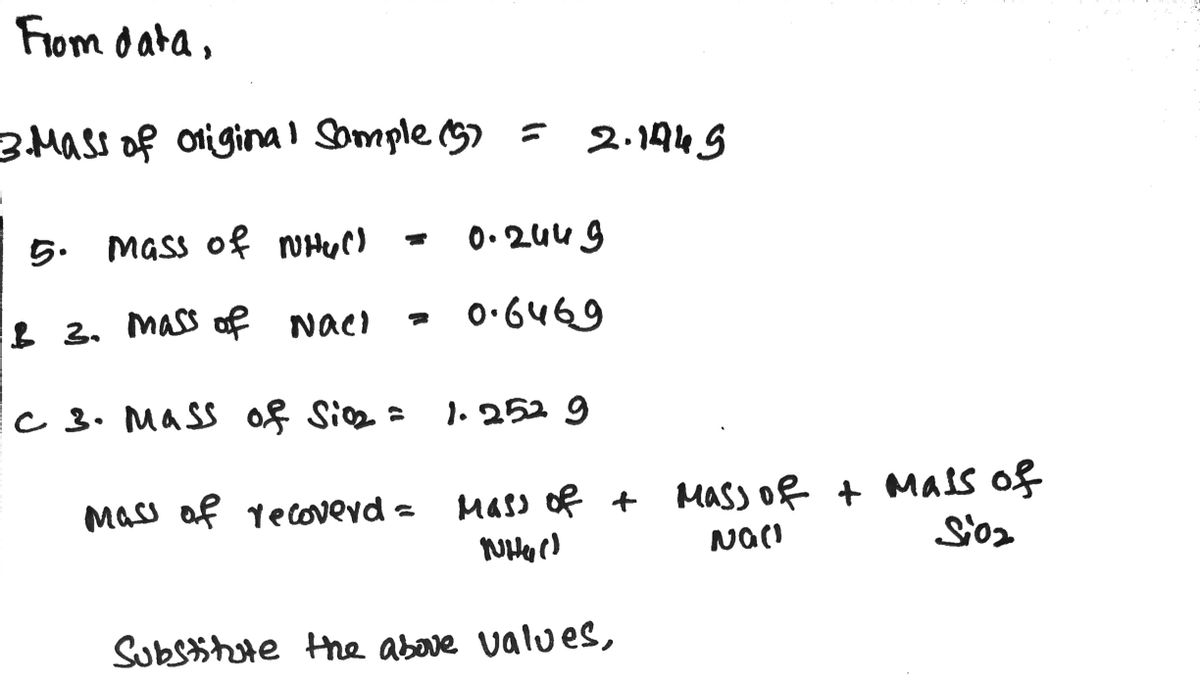 From data,
3. Mass of original Sample (g) = 2.194 g
5. Mass of NH4Cl = 0.244 g
B 3. Mass of NaCl = 0.646g
C 3. Mass of SiO2 = 1.252 g
Mass of recoverd = Mass of + Mass of + Mass of
NH4Cl NaCl SiO2
Substitute the above values,